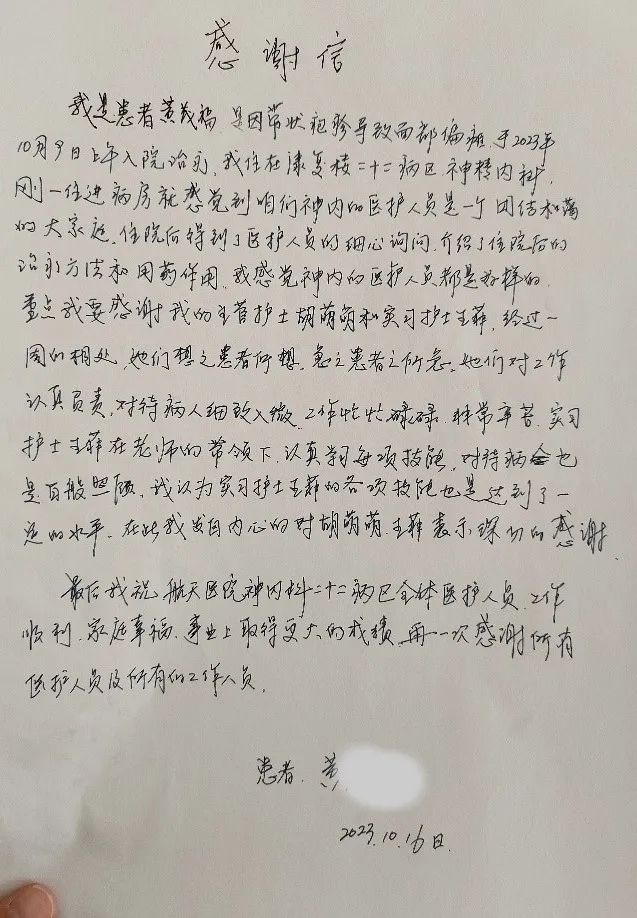 感谢信
我是患者黄茂福,是因带状疱疹导致面部偏瘫,于2023年
10月9日上午入院治疗,我住在康复楼二十二病区,神精内科,
刚一住进病房就感觉到咱们神内的医护人员是一个团结和蔼
的大家庭,住院后得到了医护人员的细心询问,介绍了住院后的
治疗方法和用药作用,我感觉神内的医护人员都是好样的,
重点我要感谢我的主管护士胡萌萌和实习护士王菲,经过一
周的相处,她们想之患者所想,急之患者之所急,她们对工作
认真负责,对待病人细致入微,工作忙忙碌碌,非常辛苦,实习
护士王菲在老师的带领下,认真学习每项技能,对待病也
是百般照顾,我认为实习护士王菲的各项技能也是达到了一
定的水平,在此我发自内心的对胡萌萌,王菲表示深切的感谢
最后我祝,航天医院神内科二十二病区全体医护人员,工作
顺利,家庭幸福,事业上取得更大的成绩,再一次感谢所有
医护人员及所有的工作人员,
患者,黄
2023.10.16日.